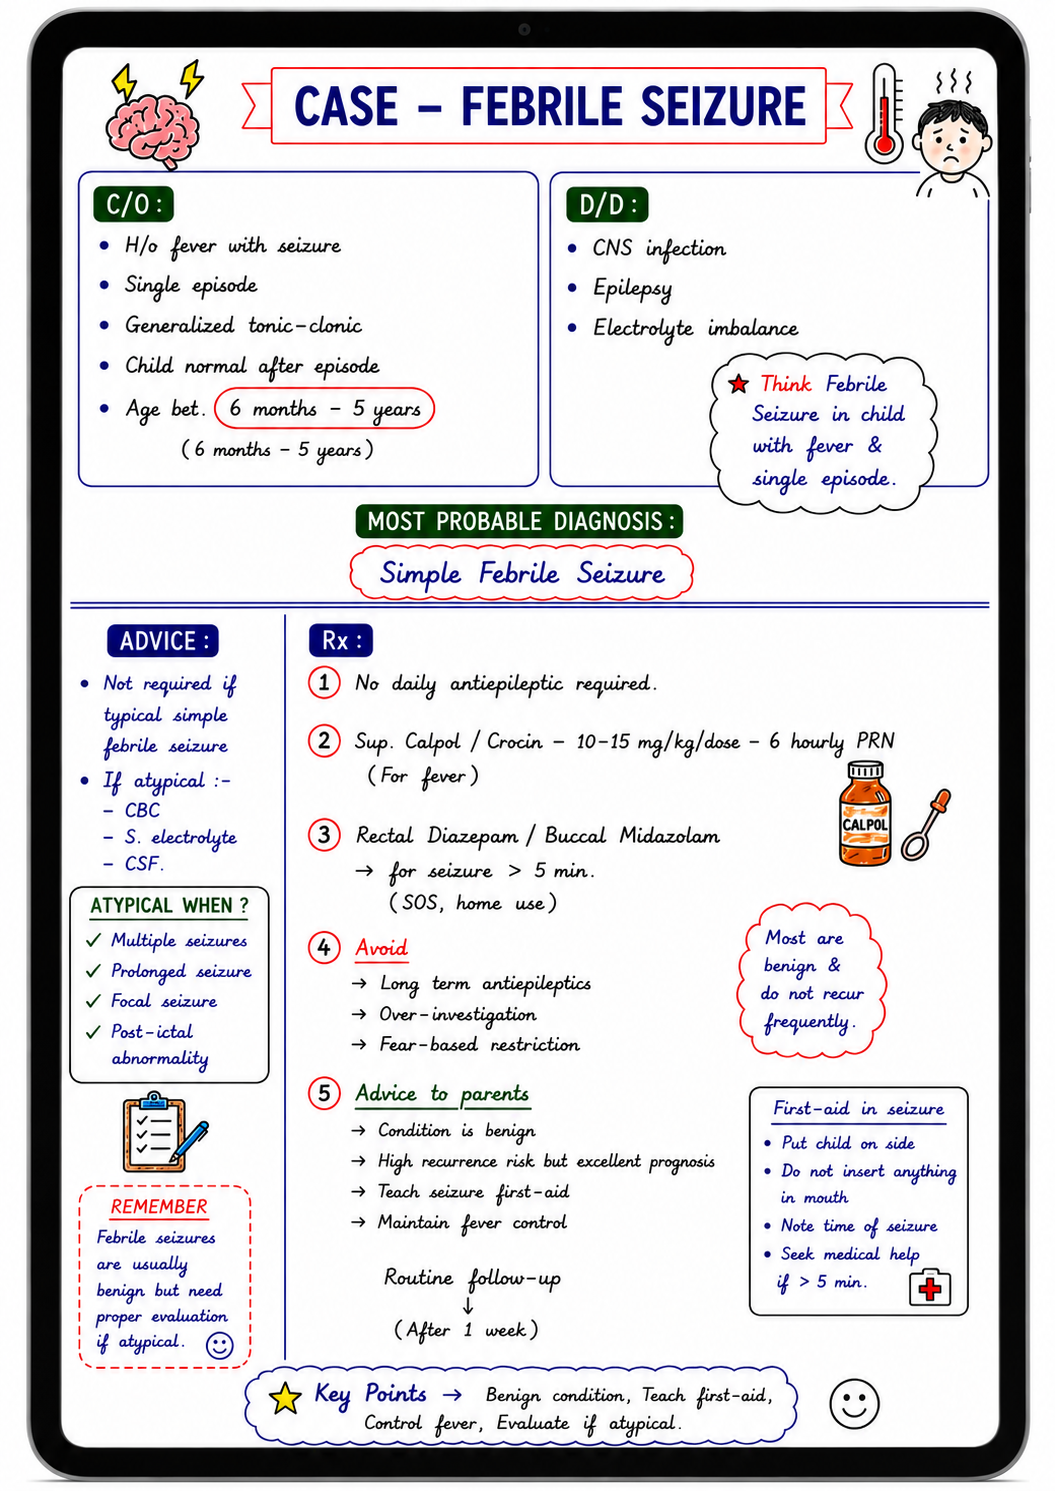 CASE – FEBRILE SEIZURE
C/O :
• H/o fever with seizure
• Single episode
• Generalized tonic-clonic
• Child normal after episode
• Age bet. 6 months – 5 years
(6 months – 5 years)
D/D :
• CNS infection
• Epilepsy
• Electrolyte imbalance
★ Think Febrile
Seizure in child
with fever &
single episode.
MOST PROBABLE DIAGNOSIS :
Simple Febrile Seizure
ADVICE :
• Not required if
typical simple
febrile seizure
• If atypical :-
– CBC
– S. electrolyte
– CSF.
ATYPICAL WHEN ?
✓ Multiple seizures
✓ Prolonged seizure
✓ Focal seizure
✓ Post-ictal
abnormality
REMEMBER
Febrile seizures
are usually
benign but need
proper evaluation
if atypical. ☺
Rx :
1 No daily antiepileptic required.
2 Sup. Calpol / Crocin – 10-15 mg/kg/dose – 6 hourly PRN
(For fever)
CALPOL
3 Rectal Diazepam / Buccal Midazolam
→ for seizure > 5 min.
(SOS, home use)
4 Avoid
→ Long term antiepileptics
→ Over-investigation
→ Fear-based restriction
Most are
benign &
do not recur
frequently.
5 Advice to parents
→ Condition is benign
→ High recurrence risk but excellent prognosis
→ Teach seizure first-aid
→ Maintain fever control
Routine follow-up
↓
(After 1 week)
First-aid in seizure
• Put child on side
• Do not insert anything
in mouth
• Note time of seizure
• Seek medical help
if > 5 min.
★ Key Points → Benign condition, Teach first-aid,
Control fever, Evaluate if atypical.